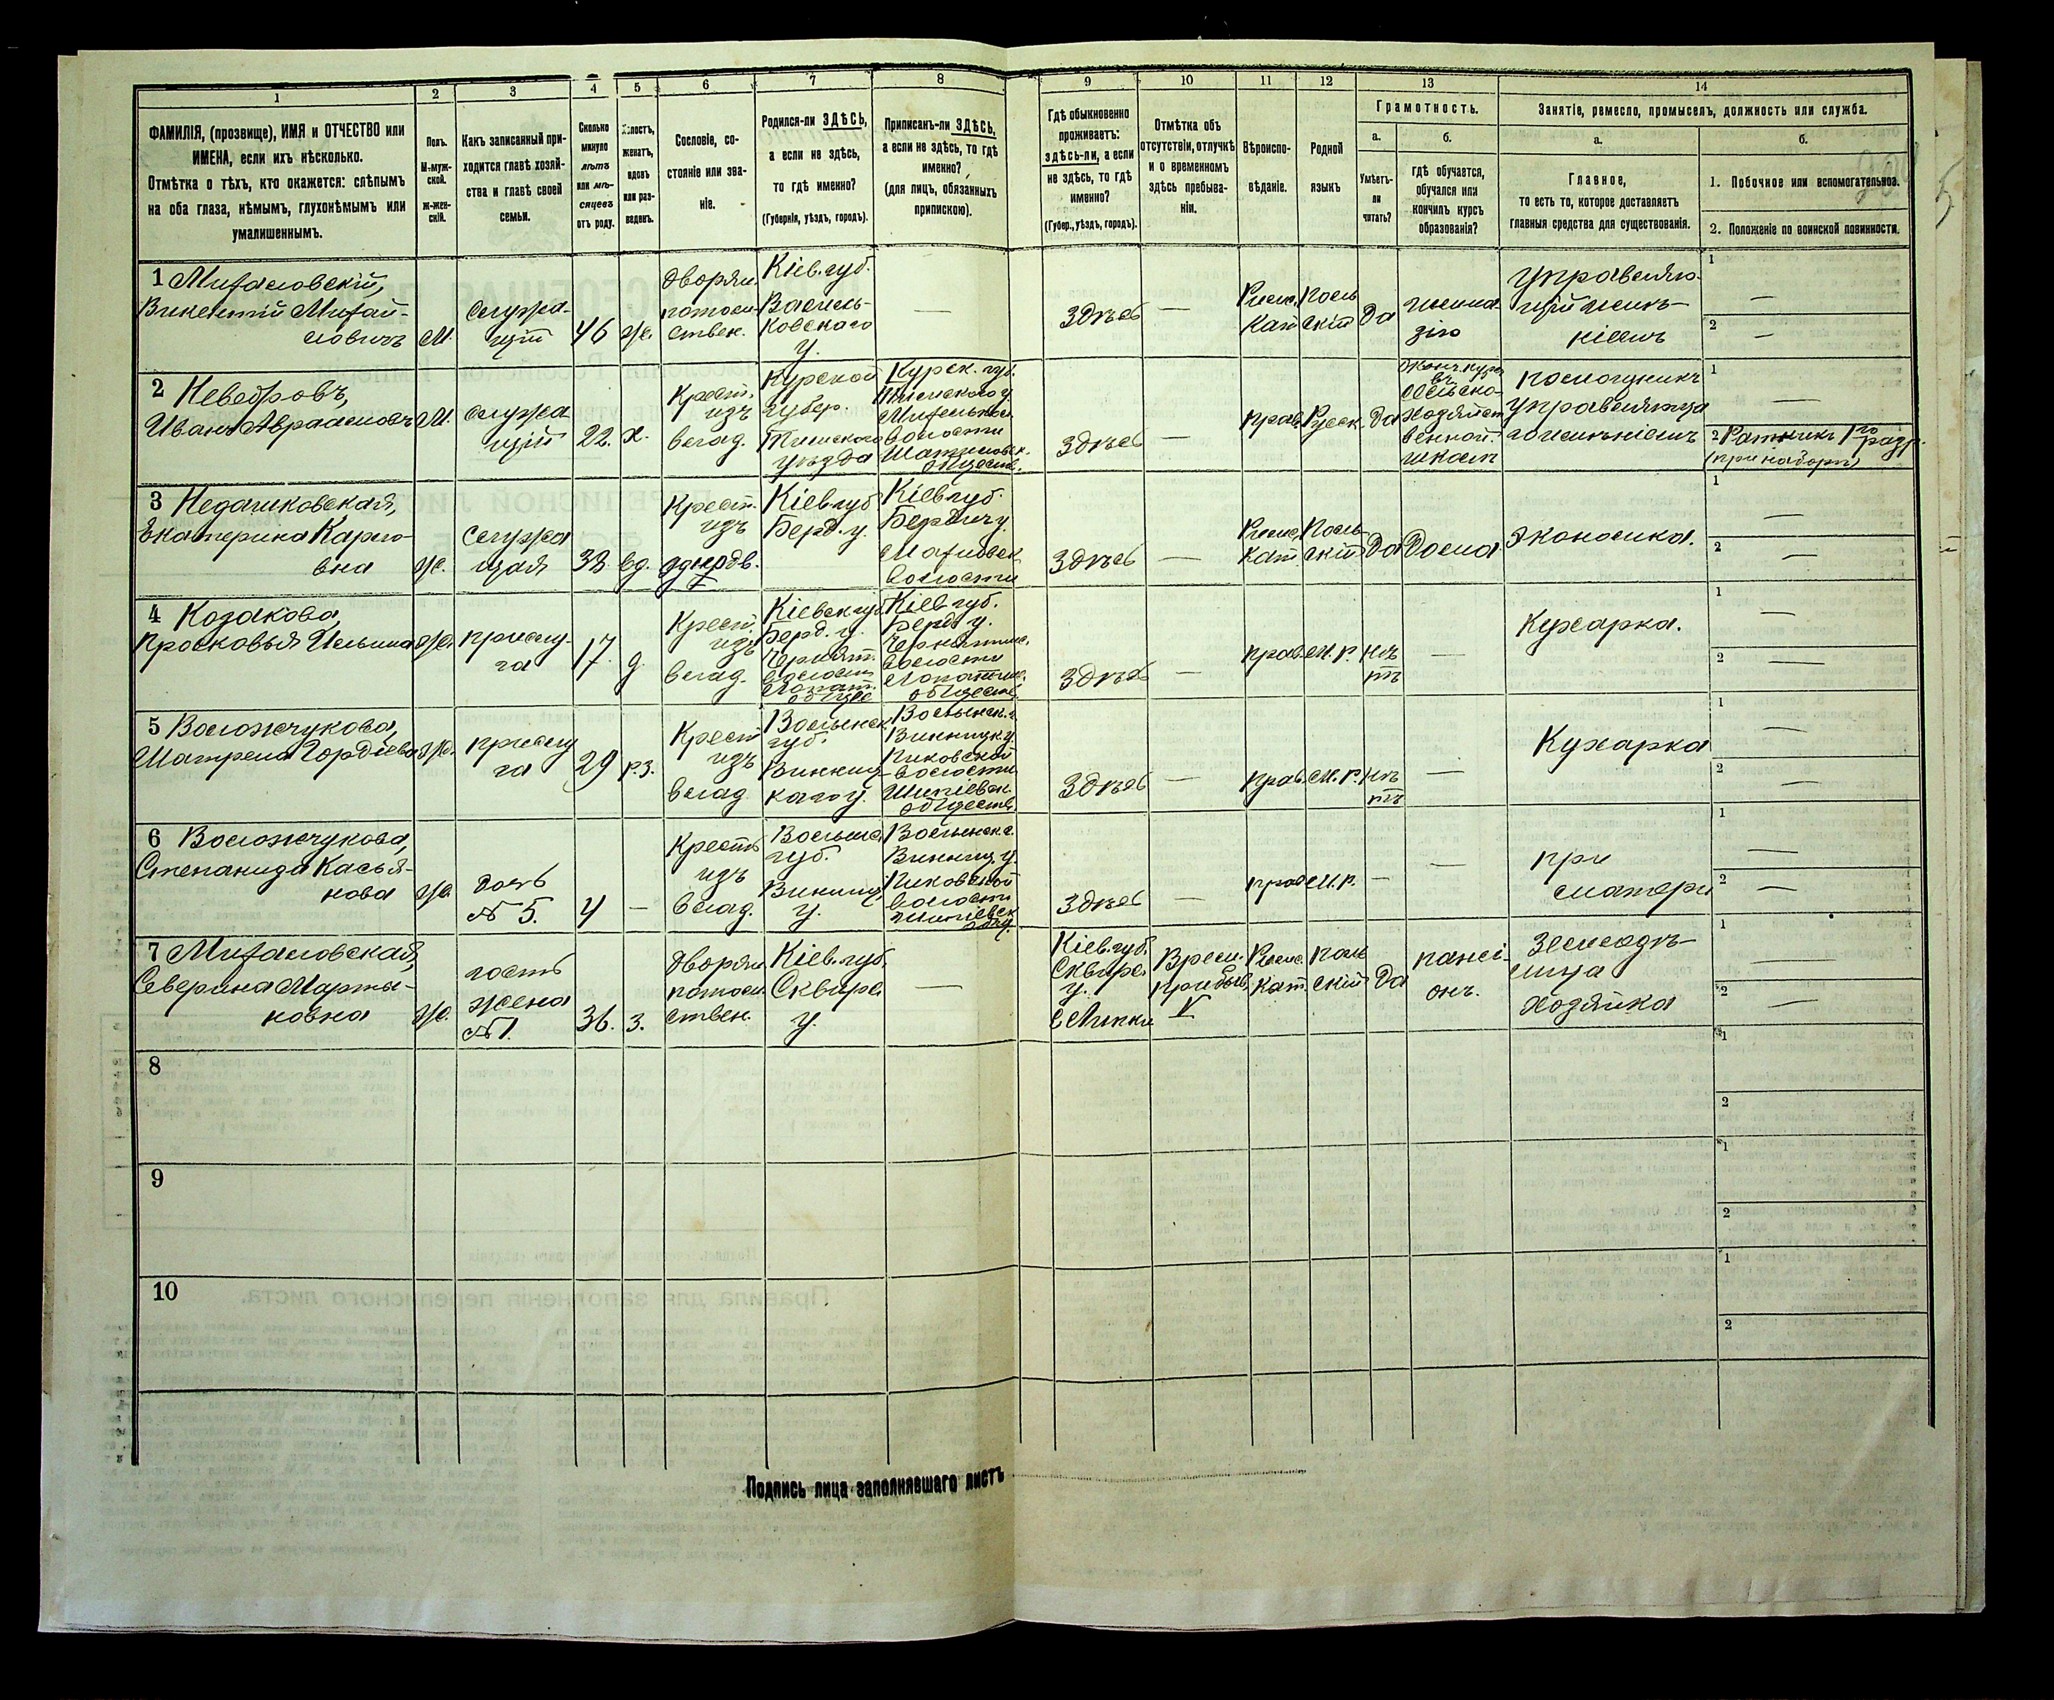 1 2 3 4 5 6 7 8 9 10 11 12 13 14
ФАМИЛІЯ, (прозвище), ИМЯ и ОТЧЕСТВО или
ИМЕНА, если ихъ нѣсколько.
Отмѣтка о тѣхъ, кто окажется: слѣпымъ
на оба глаза, нѣмымъ, глухонѣмымъ или
умалишеннымъ.
Полъ.
М-муж-
ской.
ж-жен-
скій.
Какъ записанный при-
ходится главѣ хозяй-
ства и главѣ своей
семьи.
Сколько
минуло
лѣтъ
или мѣ-
сяцевъ
отъ роду.
Холостъ,
женатъ,
вдовъ
или раз-
веденъ.
Сословіе, со-
стояніе или зва-
ніе.
Родился-ли ЗДѢСЬ,
а если не здѣсь,
то гдѣ именно?
(Губернія, уѣздъ, городъ).
Приписанъ-ли ЗДѢСЬ,
а если не здѣсь, то гдѣ
именно?
(для лицъ, обязанныхъ
припискою).
Гдѣ обыкновенно
проживаетъ:
здѣсь-ли, а если
не здѣсь, то гдѣ
именно?
(Губер., уѣздъ, городъ).
Отмѣтка объ
отсутствіи, отлучкѣ
и о временномъ
здѣсь пребыва-
ніи.
Вѣроиспо-
вѣданіе.
Родной
языкъ
Грамотность.
а.
Умѣетъ-
ли
читать?
б.
гдѣ обучается,
обучался или
кончилъ курсъ
образованія?
Занятіе, ремесло, промыселъ, должность или служба.
а.
Главное,
то есть то, которое доставляетъ
главныя средства для существованія.
б.
1. Побочное или вспомогательное.
2. Положеніе по воинской повинности.
1 Михаловскій,
Викентій Михай-
ловичъ
М.
служа-
щій
46
ж.
дворян.
потом-
ствен.
Кіев. губ.
Василь-
ковскаго
у.
—
Здѣсь
—
Римс.
Кат.
Поль
скій
Да
гимна
зію
Управляю-
щій имѣ-
ніемъ
1 —
2 —
2 Невебровъ,
Иванъ Авраамовъ
М.
служа
щій
22.
х.
Крест.
изъ
влад.
Курской
губер.
Тимскаго
уѣзда
Курск. губ.
Тимскаго у.
волости
обществ.
Здѣсь
—
прав.
Русск.
Да
Оконч. курс
въ
сельско-
хозяйст
венной
школѣ
помощникъ
управляюща
го имѣніемъ
1 —
2 Ратникъ 1го разр.
(при наборѣ)
3
Екатерина Карло-
вна
ж.
служа
щая
38.
вд.
Крест.
изъ
однодв.
Кіев. губ
Берд. у.
Кіев. губ.
Бердич. у.
волости
Здѣсь
—
Римс.
Кат.
Поль
скій
Да
Дома
Экономка.
1 —
2 —
4 Козакова,
Просковья Ильина
ж.
прислу-
га
17.
д.
Крест
изъ
влад.
Кіевск. губ.
Берд. у.
волости
Кіев. губ.
Берд. у.
волости
обществ.
Здѣсь
—
прав.
м. р.
нѣ
тъ
—
Кухарка.
1 —
2 —
5 Воложчукова,
Матрена Гордіева
ж.
прислу
га
29
рз.
Крест
изъ
влад
Волынск.
губ.
Винниц
каго у.
Волынск. г.
Винницк. у.
Пиковской
волости
обществ.
Здѣсь
—
прав.
м. р.
нѣ
тъ
—
Кухарка
1 —
2 —
6 Воложчукова,
Степанида Касья-
нова
ж.
дочь
№ 5.
4
—
Крест
изъ
влад.
Волынс.
губ.
Винниц.
у.
Волынск. г.
Винниц. у.
Пиковской
волости
Здѣсь
—
прав.
м. р.
—
—
при
матери
1 —
2 —
7 Михаловская,
Северина Марты-
новна
ж.
гость
жена
№ 1.
36.
з.
дворян.
потом.
ствен.
Кіев. губ.
Сквирс.
у.
—
Кіев. губ.
Сквирс.
у.
с. Липки
Врем.
прибыв.
V
Римс.
кат.
поль
скій
Да
пансі-
онъ.
землевладѣ-
лица
хозяйка
1 —
2 —
8
1
2
9
1
2
10
1
2
Подпись лица заполнявшаго листъ